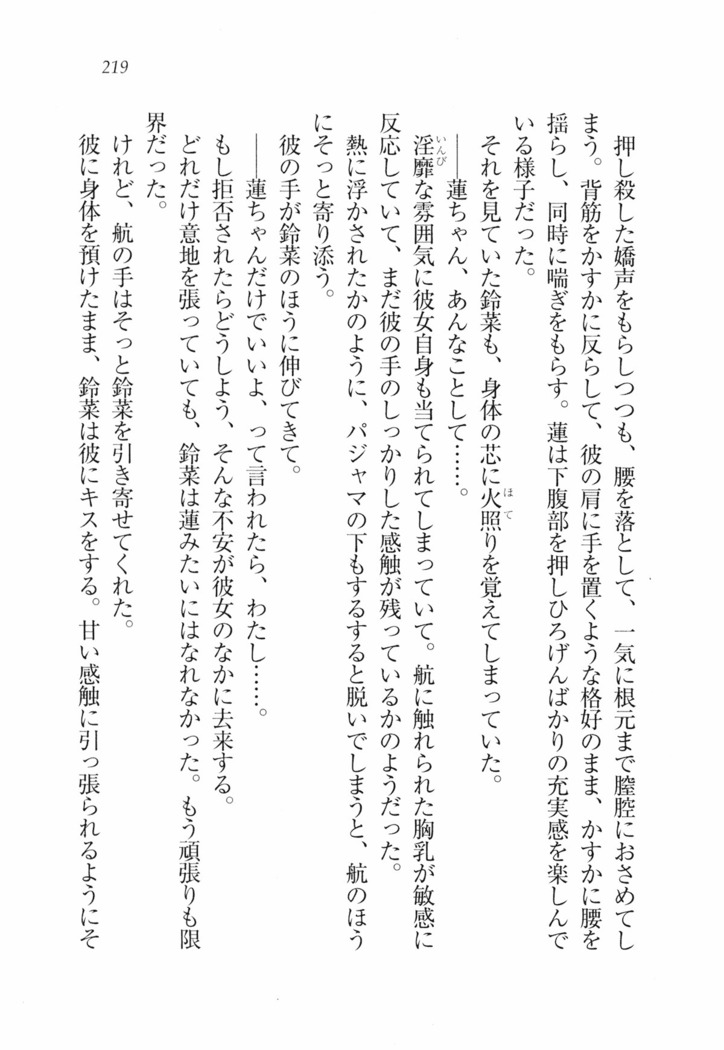 219
押し殺した嬌声をもらしつつも、腰を落として、一気に根元まで膣腔におさめてし
まう。背筋をかすかに反らして、彼の肩に手を置くような格好のまま、かすかに腰を
揺らし、同時に喘ぎをもらす。蓮は下腹部を押しひろげんばかりの充実感を楽しんで
いる様子だった。
それを見ていた鈴菜も、身体の芯に火照りを覚えてしまっていた。
ほて
――蓮ちゃん、あんなことして……。
淫靡な雰囲気に彼女自身も当てられてしまっていて。航に触れられた胸乳が敏感に
いんび
反応していて、まだ彼の手のしっかりした感触が残っているかのようだった。
熱に浮かされたかのように、パジャマの下もするすると脱いでしまうと、航のほう
にそっと寄り添う。
彼の手が鈴菜のほうに伸びてきて。
――蓮ちゃんだけでいいよ、って言われたら、わたし……。
もし拒否されたらどうしよう、そんな不安が彼女のなかに去来する。
どれだけ意地を張っていても、鈴菜は蓮みたいにはなれなかった。もう頑張りも限
界だった。
けれど、航の手はそっと鈴菜を引き寄せてくれた。
彼に身体を預けたまま、鈴菜は彼にキスをする。甘い感触に引っ張られるようにそ